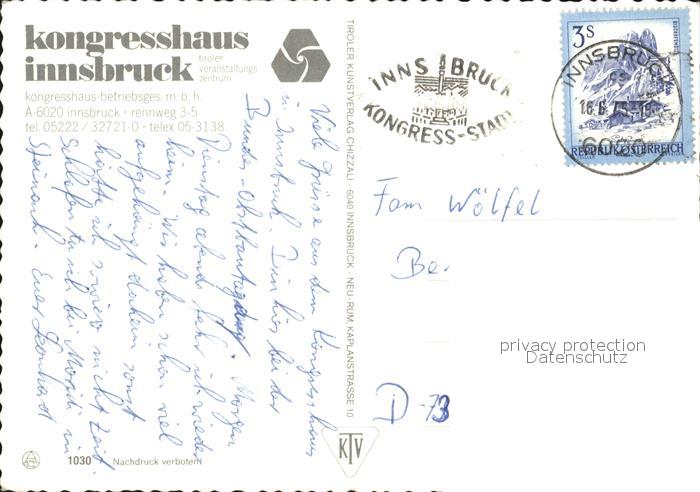 kongresshaus
innsbruck
tiroler
veranstaltungs
zentrum
kongresshaus-betriebsges. m. b. h.
A-6020 innsbruck · rennweg 3-5
tel. 05222 / 32721-0 · telex 05-3138
Viele Grüsse aus dem Kongresshaus
in Innsbruck. Bin hier bei der
Bundes-Obstbautagung. Morgen
Dienstag abend fahr ich wieder
heim. Wir haben schon viel
aufgehängt daheim sonst
hätte ich sowieso nicht Zeit.
Schlafen tu ich bei in
Steinach. Euer Leonhard
1030
Nachdruck verboten
TIROLER KUNSTVERLAG CHIZZALI · 6040 INNSBRUCK · NEU-RUM KAPLANSTRASSE 10
KTV
INNSBRUCK
KONGRESS-STADT
3S
INNSBRUCK
REPUBLIK ÖSTERREICH
Fam Wölfel
Be
D-73
privacy protection
Datenschutz